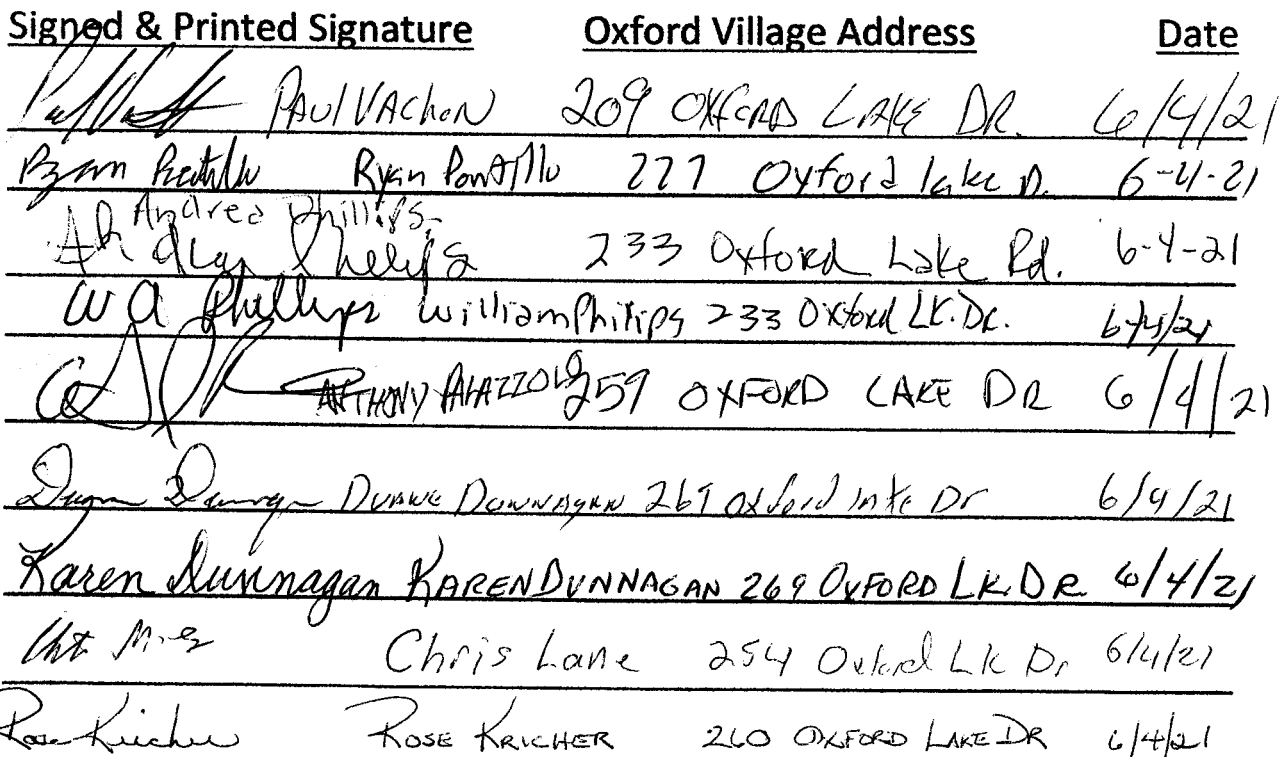 Signed & Printed Signature Oxford Village Address Date
PAUL VACHON 209 OXFORD LAKE DR. 6/4/21
Ryan Portillo 227 Oxford lake D. 6-4-21
Andrea Phillips
233 Oxford Lake Rd. 6-4-21
W A Phillips William Philips 233 Oxford LK. Dr. 6/4/21
ANTHONY PALAZZOLO 259 OXFORD LAKE DR 6/4/21
DUANE DUNNAGAN 269 Oxford lake Dr 6/4/21
Karen Dunnagan KAREN DUNNAGAN 269 OXFORD LK. DR. 6/4/21
Chris Lane 254 Oxford LK Dr 6/4/21
Rose Kricher ROSE KRICHER 260 OXFORD LAKE DR 6/4/21